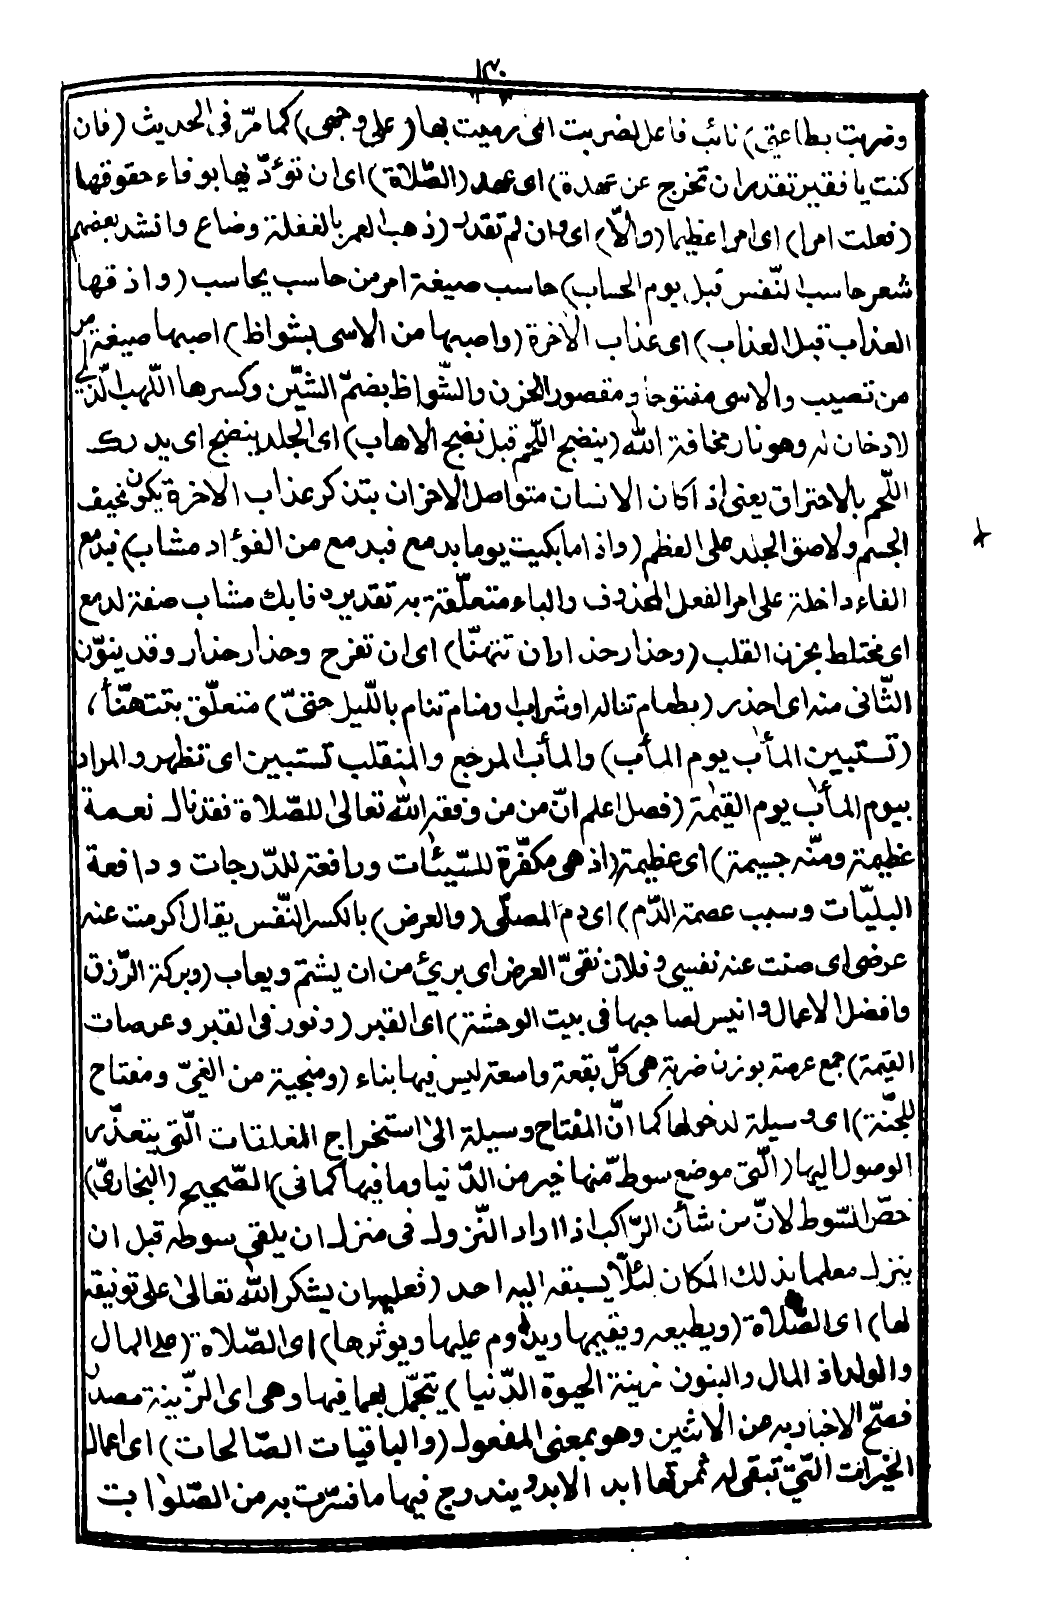 ١٣٠
وضربت بطاعتى) نائب فاعل لضربت التى رميت بها (على وجهى) كما مرّ فى الحديث (فان
كنت يا فقير تقدر ان تخرج عن عهدة) اى عهد (الصّلاة) اى ان تؤدّيها بوفاء حقوقها
(فعلت امرا) اى امرا عظيما (والّا) اى وان لم تقدر (ذهب العمر بالغفلة وضاع وانشد بعضهم
شعر حاسب النّفس قبل يوم الحساب) حاسب صيغة امر من حاسب يحاسب (واذقها
العذاب قبل العذاب) اى عذاب الآخرة (واصبها من الاسى بشواظ) اصبها صيغة امر
من تصيب والاسى مفتوحا ومقصورا الحزن والشّواظ بضمّ الشّين وكسرها اللّهب الّذى
لادخان له وهو نار مخافة الله (ينضج اللّحم قبل نضج الاهاب) اى الجلد ينضج اى يدرك
اللّحم بالاحتراق يعنى اذا كان الانسان متواصل الاحزان بتذكر عذاب الاخرة يكون نحيف
الجسم ولاصق الجلد على العظم (واذا ما بكيت يوما بدمع فبدمع من الفؤاد مشاب) فبدمع
الفاء داخلة على امر الفعل المحذوف والباء متعلّقة به تقديره فابك مشاب صفة لدمع
اى مختلط بحزن القلب (وحذار حذار ان تتهنّا) اى ان تفرح وحذار حذار وقد ينوّن
الثّانى منه اى احذر (بطعام تناله او شراب ومنام تنام باللّيل حتّى) متعلّق بتتهنّأ،
(تستبين المآب يوم المآب) والمآب المرجع والمنقلب تستبين اى تظهر والمراد
بيوم المآب يوم القيمة (فصل اعلم انّ من وفقه الله تعالى للصّلاة فقد نال نعمة
عظيمة ومنّه جسيمة) اى عظيمة (اذ هى مكفّرة للسّيئات ورافعة للدّرجات ودافعة
البليّات وسبب عصمة الدّم) اى دم المصلّى (والعرض) بالكسر النّفس يقال اكرمت عنه
عرضى اى صنت عنه نفسى وفلان نقىّ العرض اى برئ من ان يشتم ويعاب (وبركة الرّزق
وافضل الاعمال وانيس لصاحبها فى بيت الوحشة) اى القبر (ونور فى القبر وعرصات
القيمة) جمع عرصة بوزن ضربة هى كلّ بقعة واسعة ليس فيها بناء (ومنجية من الغىّ ومفتاح
للجنّة) اى وسيلة لدخولها كما انّ المفتاح وسيلة الى استخراج المغلقات الّتى يتعذّر
الوصول اليها (الّتى موضع سوط منها خير من الدّنيا وما فيها كما فى) الصّحيح (البخارىّ)
خصّ السّوط لانّ من شأن الرّاكب اذا اراد النّزول فى منزل ان يلقى سوطه قبل ان
ينزل معلما بذلك المكان لئلّا يسبقه اليه احد (فعليه ان يشكر الله تعالى على توفيقه
لها) اى الصّلاة (ويطيعه ويقيمها ويداوم عليها ويؤثرها) اى الصّلاة (على المال
والولد اذ المال والبنون زينة الحيوة الدّنيا) يتجمّل بهما فيها وهى اى الزّينة مصدر
فصحّ الاخبار به عن الاثنين وهو بمعنى المفعول (والباقيات الصّالحات) اى اعمال
الخيرات الّتى تبقى له ثمرتها ابد الابد ويندرج فيها ما فسّرت به من الصّلوات